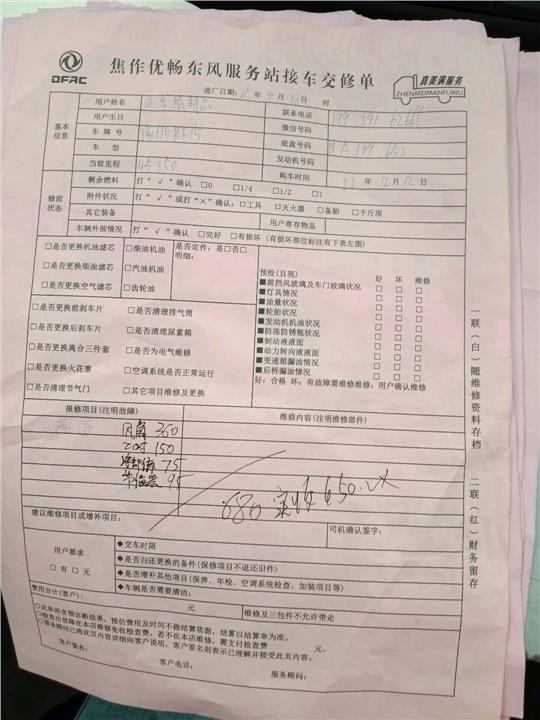 DFAC
焦作优畅东风服务站接车交修单
真美满服务
ZHENMEIMANFUWU
进厂日期：25年4月23日 时
基本信息
用户姓名
联系电话
用户生日
微信号码
车牌号
底盘号码
车型
发动机号码
当前里程 45350
购车时间 22年12月12日
修前状态
剩余燃料 打“√”确认 □0 □1/4 □1/2 □1
附件状况 打“√”或打“×”确认：□工具 □灭火器 □备胎 □千斤顶
其它装备 用户寄存物品
车辆外部情况 打“√”确认 □完好 □有损坏（有损坏部位标注有下表左图）
□是否更换机油滤芯 □柴油机油 是否定件：是□否□
明细：
□是否更换柴油滤芯 □汽油机油
□是否更换空气滤芯 □齿轮油
□是否更换前刹车片 □是否清理排气筒
□是否更换后刹车片 □是否清理尿素箱
□是否更换离合三件套 □是否为电气维修
□是否更换火花塞 □空调系统是否正常运行
□是否清理节气门 □其它项目维修及更换
预检(目视) 好 坏 维修
■前挡风玻璃及车门玻璃状况 □ □ □
■灯具情况 □ □ □
■油量状况 □ □ □
■轮胎状况 □ □ □
■发动机机油状况 □ □ □
■防冻防锈瓶状况 □ □ □
■制动液液面 □ □ □
■动力转向液液面 □ □ □
■变速箱漏油情况 □ □ □
■后桥漏油情况 □ □ □
好：合格 坏：有故障需维修维修：用户确认维修
报修项目(注明故障) 维修内容(注明维修部件)
风扇 360
工时 150
75
95
680 650
建议维修项目或增补项目： 司机确认签字：
用户要求
□有 □无
◆交车时限
◆是否归还更换的备件(保修项目不退还旧件)
◆是否增补其他项目(保养、年检、空调系统检查、加装项目等)
◆车辆是否需要清洁：
费用合计(客户)： 元 维修及三包件不允许带走
○此单所含预诊断结果，预估费用及时间不做结算依据，结算以结算单为准。
○检查出故障在本店维修免收检查费，若不在本店维修，需支付检查费 元。
○服务顾问已将此页内容详细向客户说明，客户签名则表示已理解并接受此页内容。
客户签名： 客户电话： 服务顾问：
一联（白）随维修资料存档
二联（红）财务留存